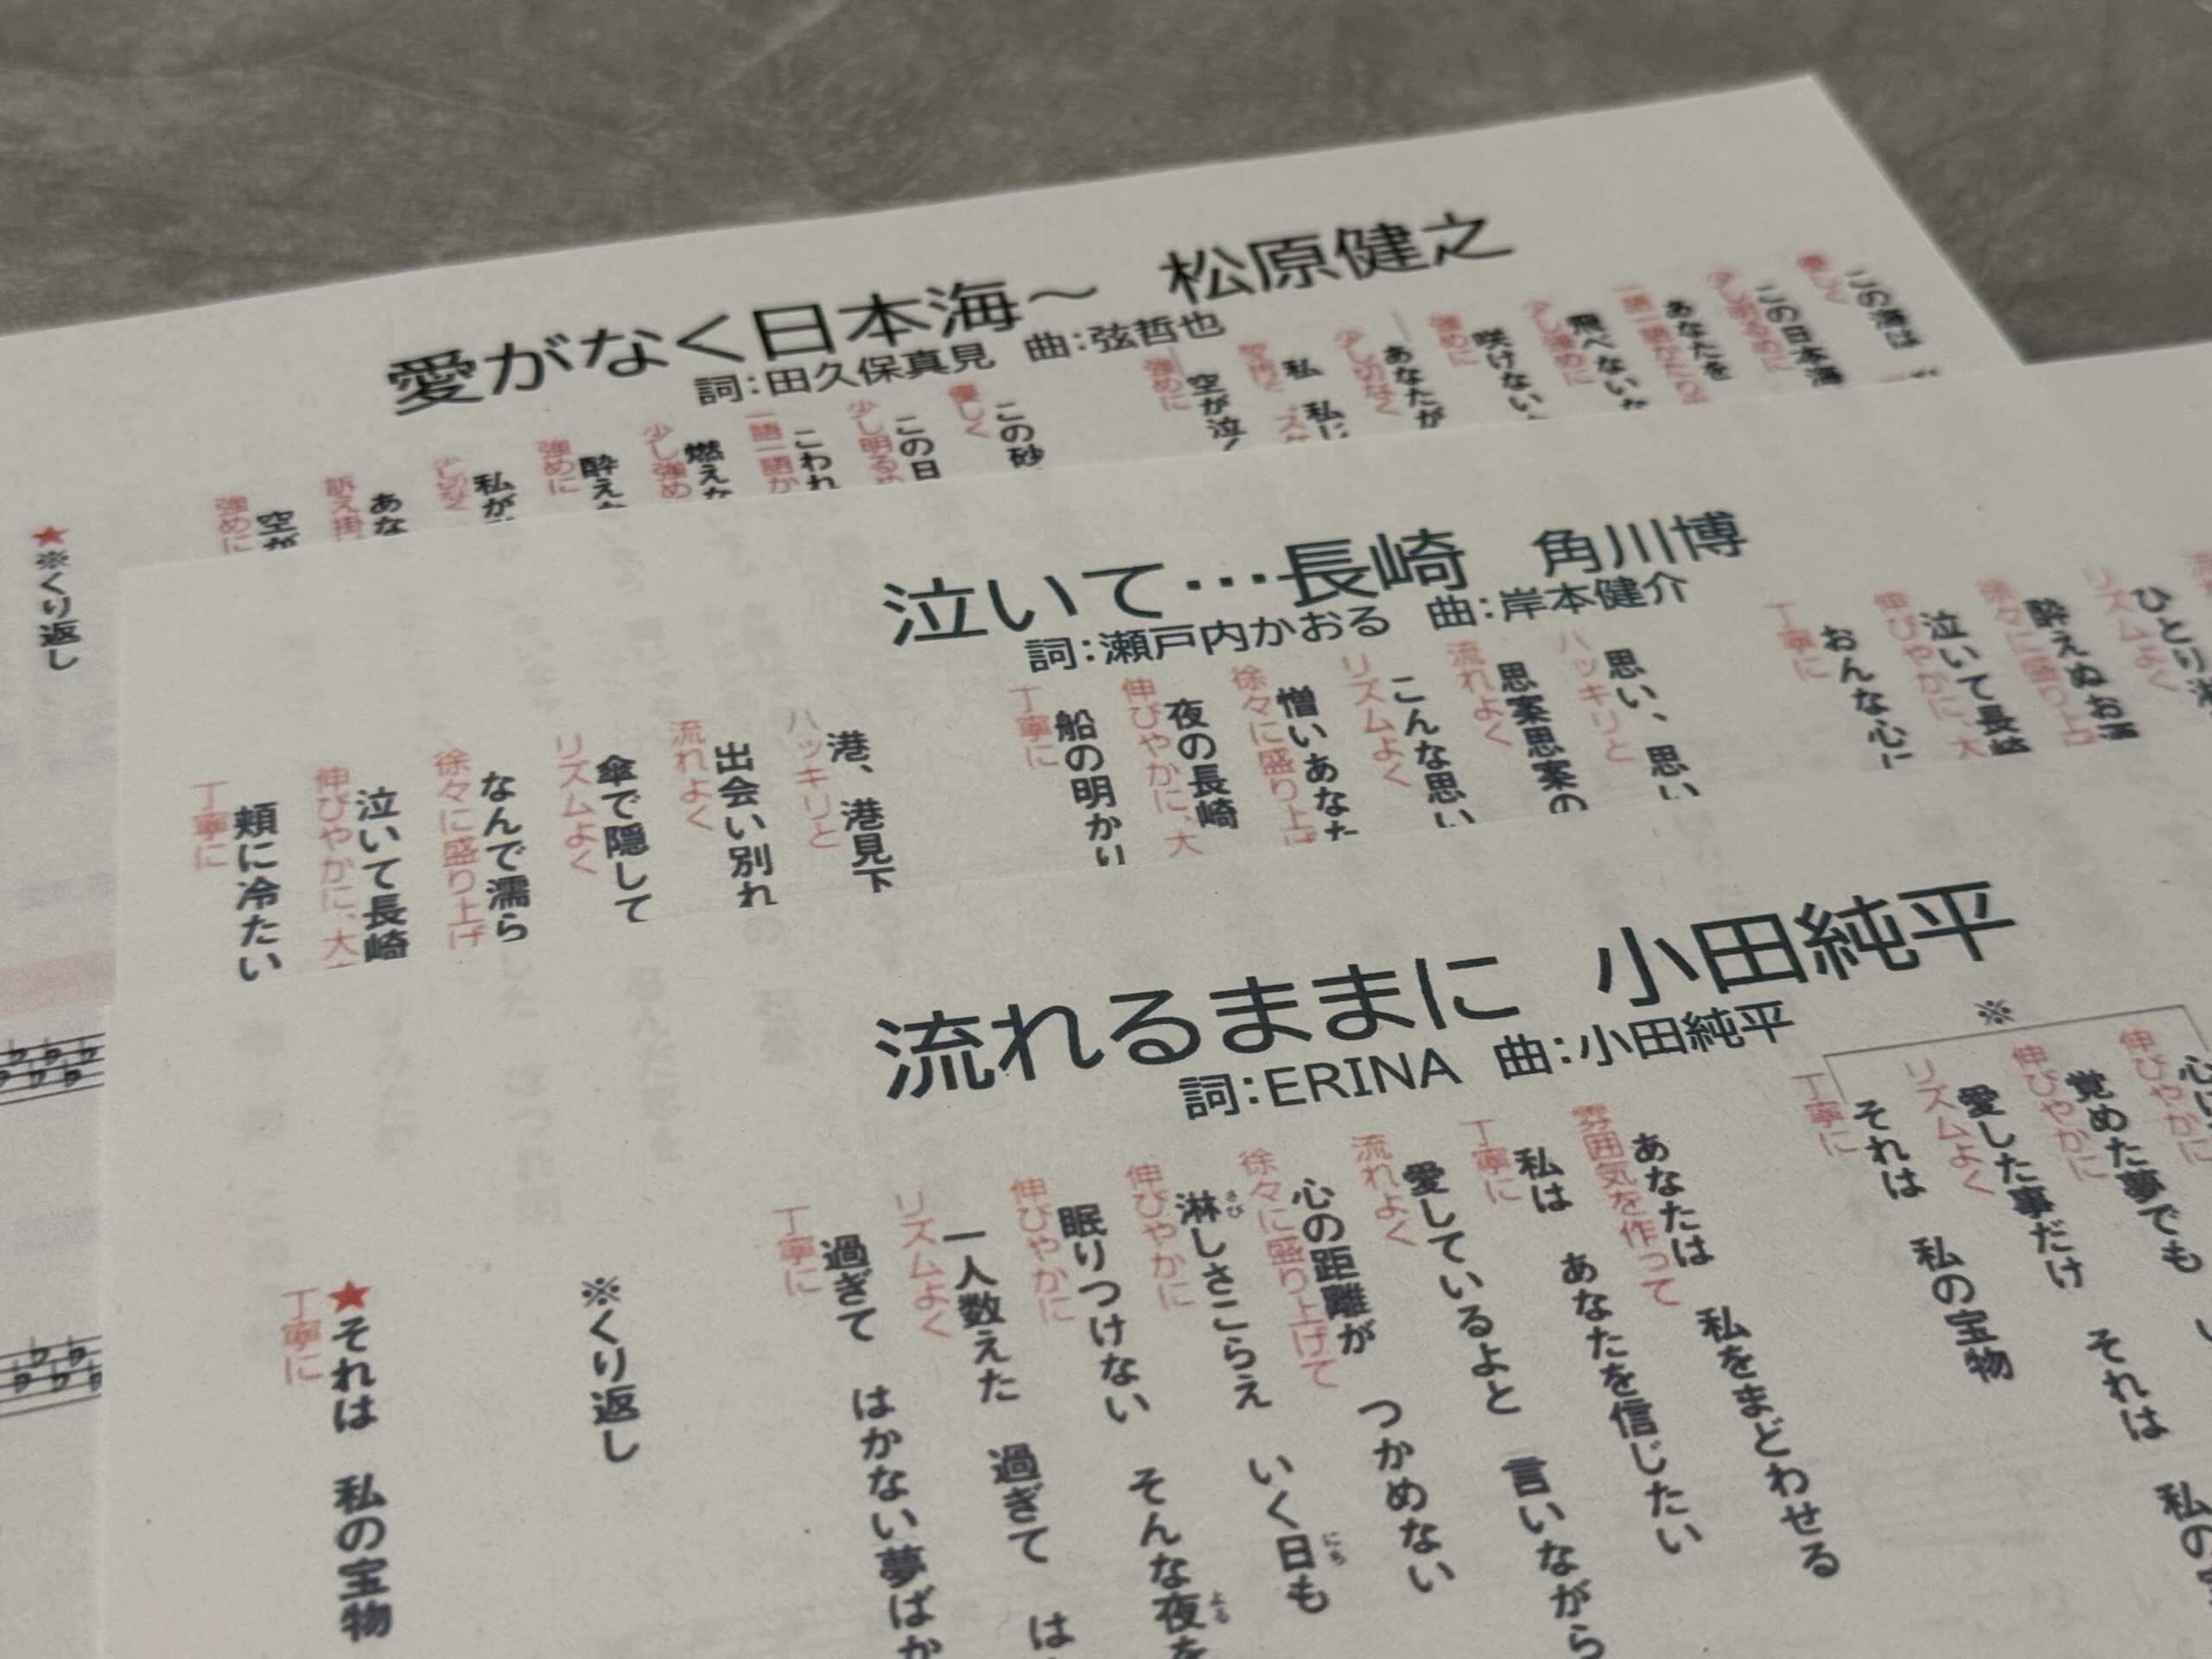 愛がなく日本海～ 松原健之
詞：田久保真見 曲：弦哲也
この海は
優しく
この日本海
少し明るめに
あなたを
一語一語かたり
飛べない
少し強めに
咲けない
強めに
あなたが
少し切なく
私 私に
空が泣
強めに
この砂
優しく
この日
少し明る
こわれ
一語一語か
燃えな
少し強め
酔え
強めに
私が
少し切なく
あな
訴え掛
空が
強めに
★※くり返し
泣いて…長崎 角川博
詞：瀬戸内かおる 曲：岸本健介
ひとり
リズムよく
酔えぬお酒
徐々に盛り上
泣いて長崎
伸びやかに、大
おんな心に
丁寧に
思い、思い
ハッキリと
思案思案の
流れよく
こんな思い
リズムよく
憎いあなた
徐々に盛り上げ
夜の長崎
伸びやかに、大
船の明かり
丁寧に
港、港見下
ハッキリと
出会い別れ
流れよく
傘で隠して
リズムよく
なんで濡ら
徐々に盛り上げ
泣いて長崎
伸びやかに、大
頬に冷たい
丁寧に
流れるままに 小田純平
詞：ERINA 曲：小田純平
※
伸びやかに
覚めた夢でも それは 私の
伸びやかに
愛した事だけ
リズムよく
それは 私の宝物
丁寧に
あなたは 私をまどわせる
雰囲気を作って
私は あなたを信じたい
丁寧に
愛しているよと 言いながら
流れよく
心の距離が つかめない
徐々に盛り上げて
淋しさこらえ いく日も
さび
にち
伸びやかに
眠りつけない そんな夜を
よる
伸びやかに
一人数えた 過ぎて は
リズムよく
過ぎて はかない夢ばか
丁寧に
※くり返し
★それは 私の宝物
丁寧に